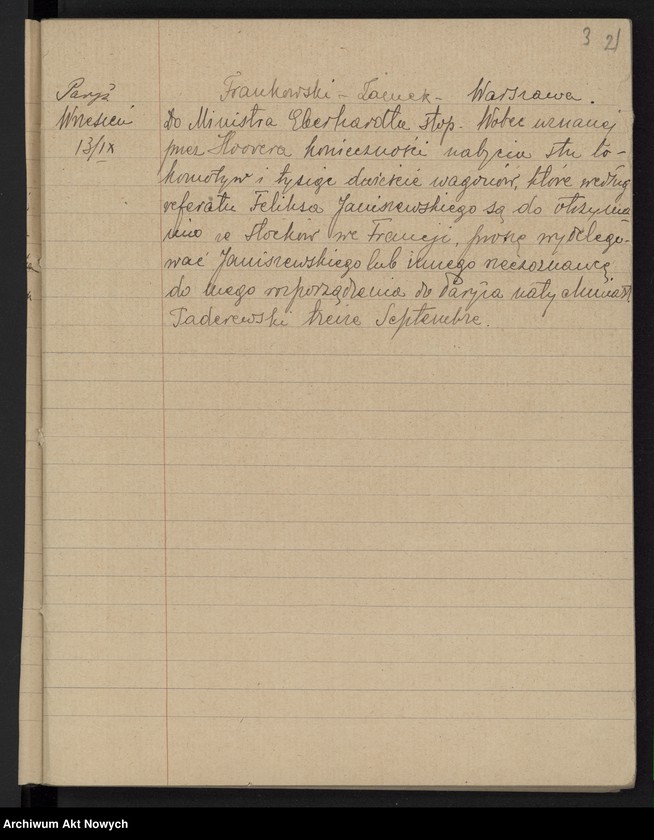 3 21
Paryż
Wrzesień
13/IX
Frankowski - Zamek - Warszawa.
Do Ministra Eberhardta stop. Wobec uznanej
przez Hoovera konieczności nabycia stu lo-
komotyw i tysiąc dwieście wagonów, które według
referatu Feliksa Janiszewskiego są do otrzyma
nia ze Stocków we Francji, proszę wydelego-
wać Janiszewskiego lub innego rzeczoznawcę
do mego rozporządzenia do Paryża natychmiast
Paderewski treize Septembre.
Archiwum Akt Nowych